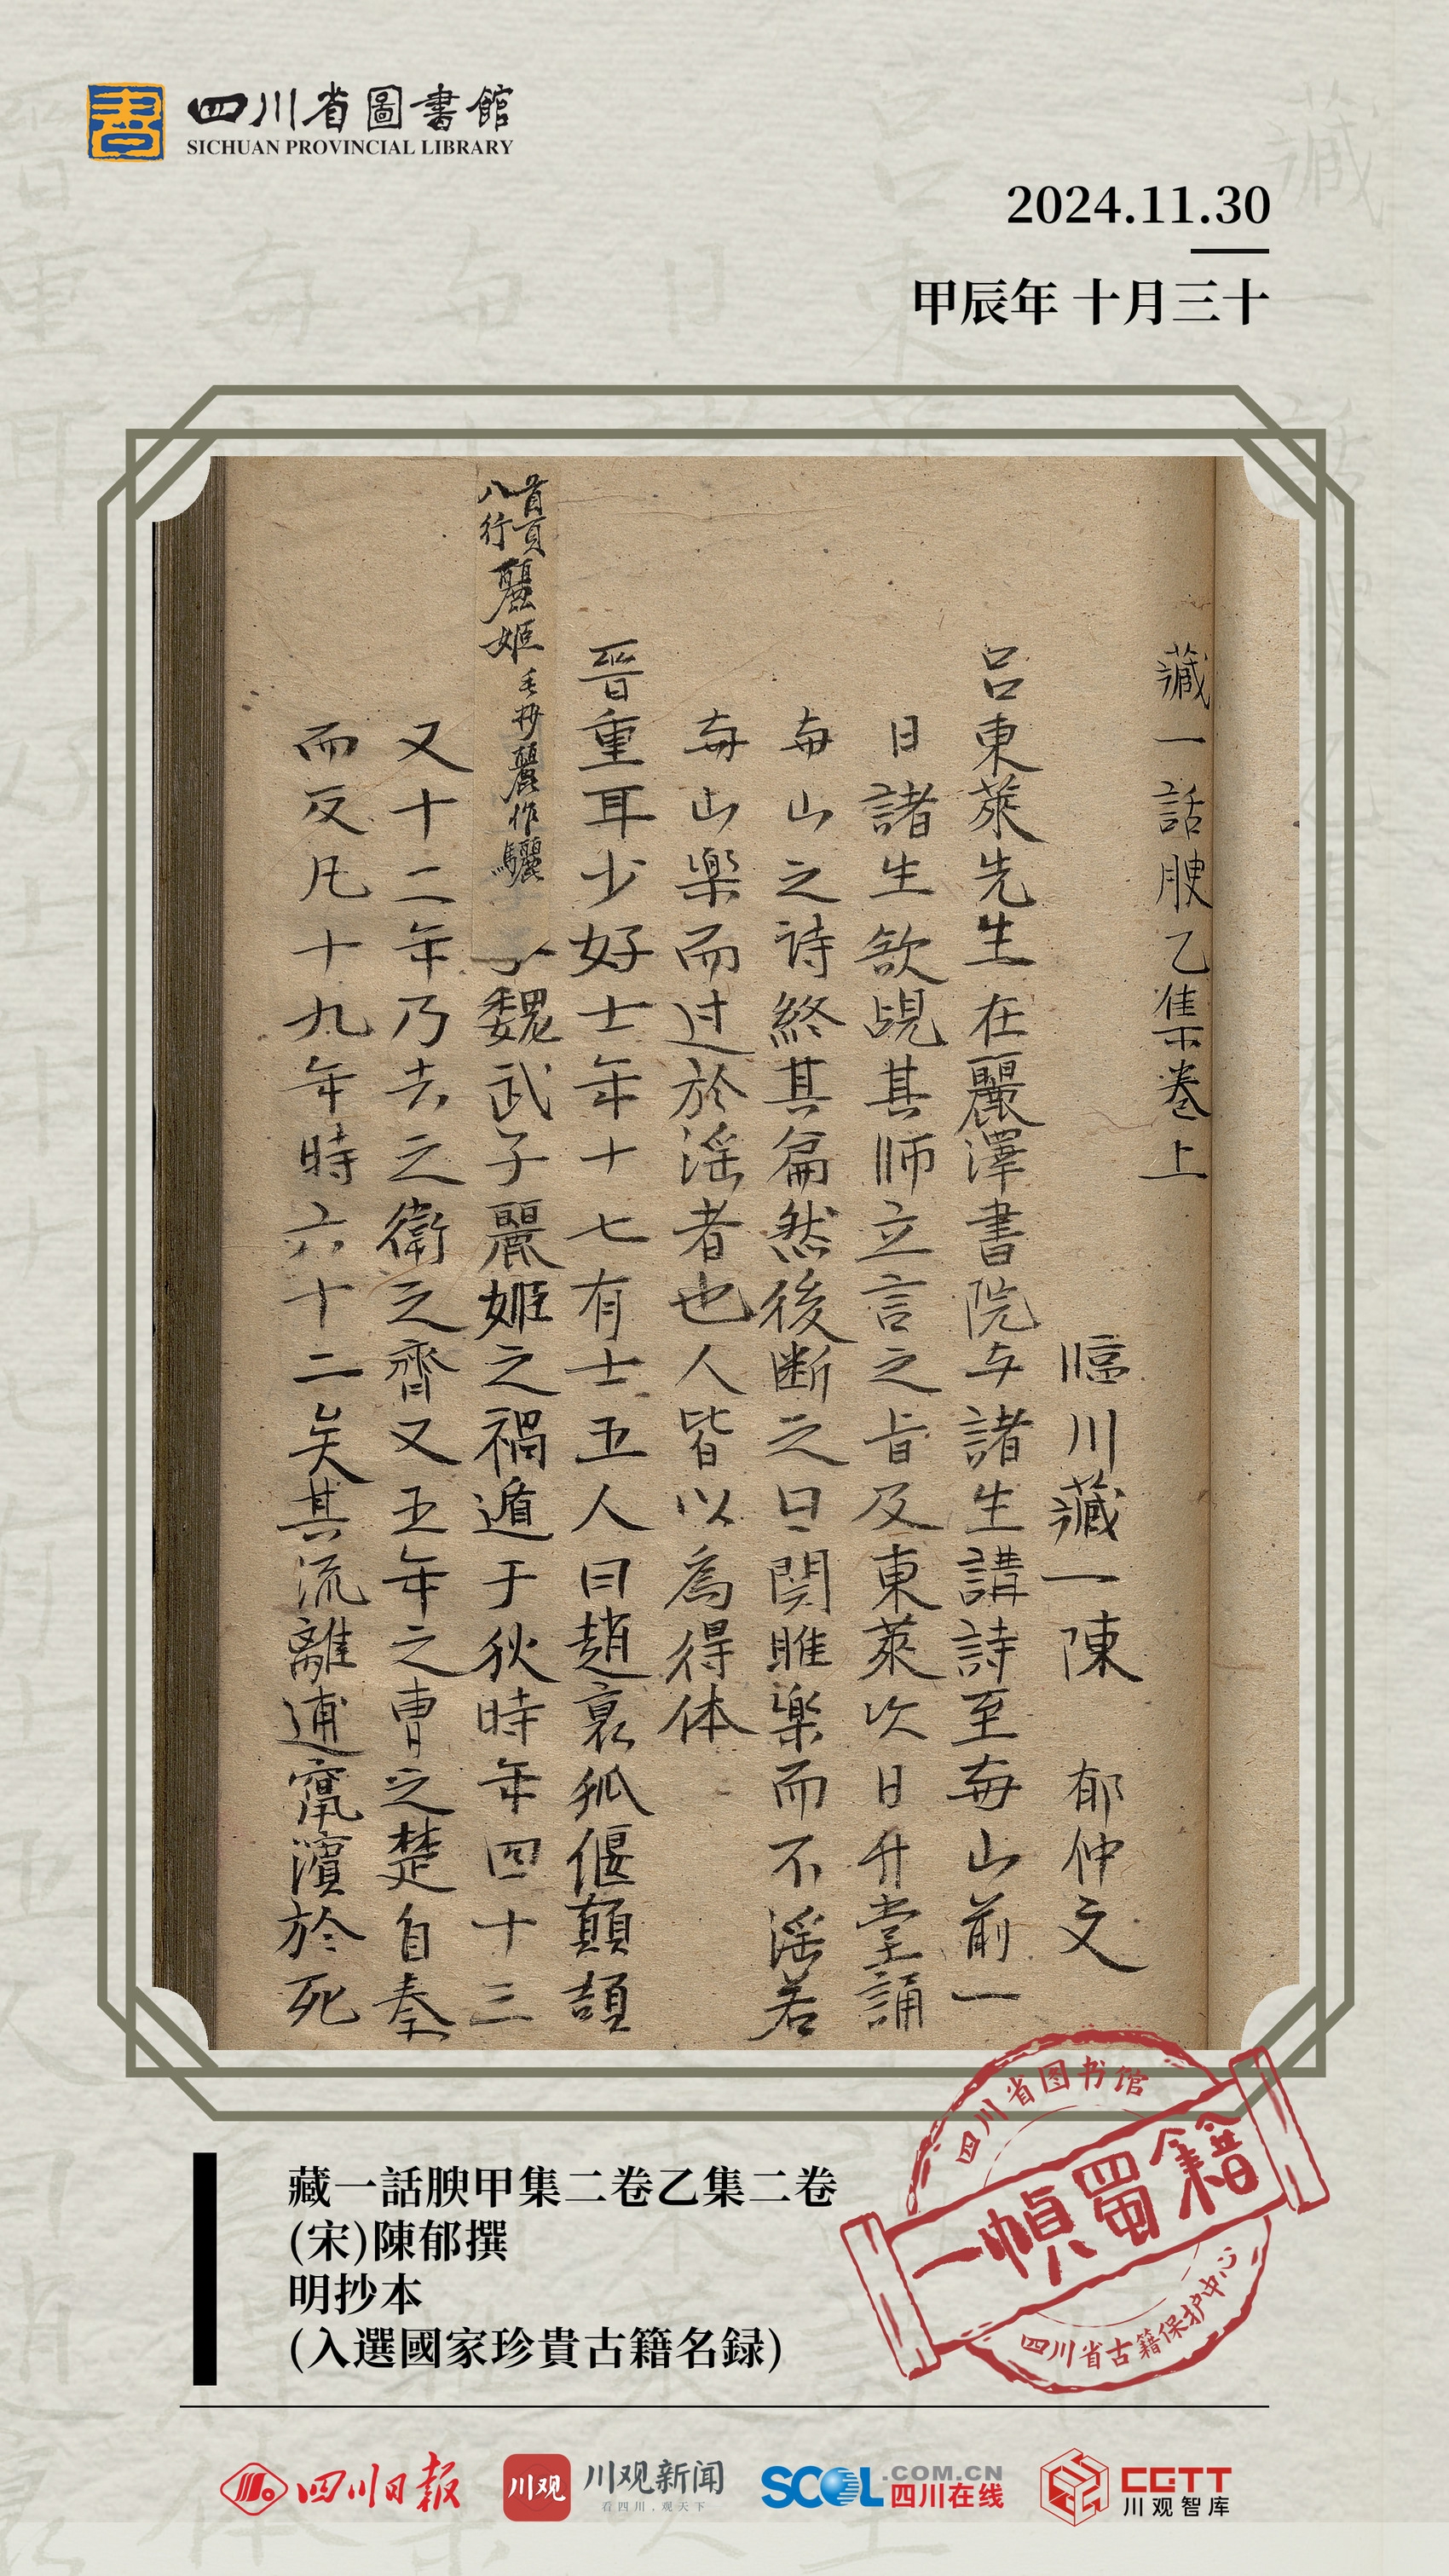 四川省圖書館
SICHUAN PROVINCIAL LIBRARY
2024.11.30
甲辰年 十月三十
藏一話腴乙集卷上
臨川藏一陳 郁仲文
呂東萊先生在麗澤書院与諸生講詩至每山前一
日諸生欲覘其师立言之旨及東萊次日升堂誦
每山之詩終其篇然後断之曰関雎楽而不滛若
每山楽而过於滛者也人皆以為得体
晋重耳少好士年十七有士五人曰趙衰狐偃顛頡
魏武子麗姬之禍遁于狄時年四十三
首頁
八行
麗姬
毛抄麗作驪
又十二年乃去之衛之齊又五年之曹之楚自秦
而反凡十九年時六十二矣其流離逋竄濱於死
藏一話腴甲集二卷乙集二卷
(宋)陳郁撰
明抄本
(入選國家珍貴古籍名録)
四川省图书馆
一幀蜀籍
四川省古籍保护中心
四川日报
川观
川观新闻
看四川，观天下
SCOL.COM.CN
四川在线
CGTT
川观智库